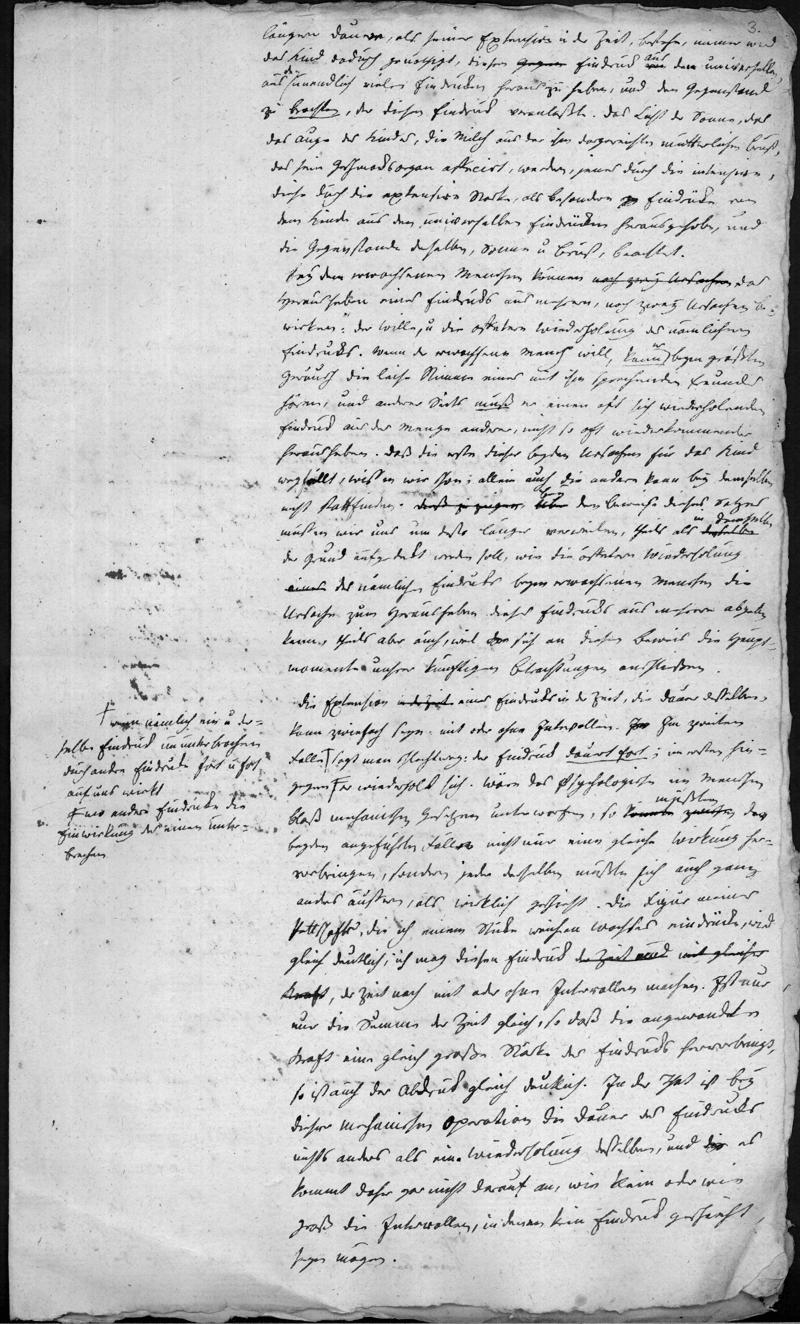 3.
längere Dauer, als seiner Extension in der Zeit, bestehe, immer wird
das Kind dadurch genöthigt, diesen Eindruck aus dem universellen
aus unendlich vielen Eindrücken heraus zu heben, und den Gegenstand
zu beachten, der diesen Eindruck veranlaßte. Das Licht der Sonne, das
das Auge des Kindes, die Milch aus der ihm dargereichten mütterlichen Brust,
das sein Geschmacksorgan afficirt, werden, jenes durch die intensive,
diese durch die extensive Stärke, als besondere Eindrücke von
dem Kinde aus dem universellen Eindrucke herausgehoben, und
die Gegenstände desselben, Sonne u Brust, beachtet.
Bey dem erwachsenen Menschen können noch zwey Ursachen das
Herausheben eines Eindrucks aus mehrern, noch zwey Ursachen be-
wirken: der Wille, u die öftere Wiederholung des nämlichen
Eindrucks. Wenn der erwachsene Mensch will, kann er beym größten
Geräusch die leise Stimme eines mit ihm sprechenden Freundes
hören, und anderer Seits muß er einen oft sich wiederholenden
Eindruck aus der Menge anderer, nicht so oft wiederkommender
herausheben. Daß die erste dieser beyden Ursachen für das Kind
wegfällt, wissen wir schon; allein auch die andere kann bey demselben
nicht stattfinden. Daß zu zeigen Bey dem Beweise dieses Satzes
müssen wir uns um desto länger verweilen, theils als in demselben
der Grund aufgedekt werden soll, wie die öftere Wiederholung
eines des nämlichen Eindrucks beym erwachsenen Menschen die
Ursache zum Herausheben dieses Eindrucks aus mehrern abgeben
könne theils aber auch, weil sich an diesen Beweis die Haupt-
momente unsrer künftigen Betrachtungen anschließen.
Die Extension in der Zeit eines Eindrucks in der Zeit, die Dauer desselben,
kann zwiefach seyn: mit oder ohne Intervallen. Im zweiten
Falle sagt man schlechtweg: der Eindruck dauert fort; im ersten hin-
gegen er wiederholt sich. Wäre das Psychologische im Menschen
bloß mechanischen Gesetzen unterworfen, so müßten den
beyden angeführten Fällen nicht nur eine gleiche Wirkung her-
vorbringen, sondern jeder derselben müßte sich auch ganz
anders äussern, als wirklich geschieht. Die Figur meines
Pettschafts, die ich einem Stücke weichen Wachses eindrücke, wird
gleich deutlich, ich mag diesen Eindruck der Zeit und mit gleicher
Kraft, der Zeit nach mit oder ohne Intervallen machen. Ist nur
nur die Summe der Zeit gleich, so daß die angewandte
Kraft eine gleich große Stärke des Eindrucks hervorbringt,
so ist auch der Abdruck gleich deutlich. In der That ist bey
dieser mechanischen Operation die Dauer des Eindrucks
nichts anders als eine Wiederholung desselben, und die es
kommt daher gar nicht darauf an, wie klein oder wie
groß die Intervallen, in denen kein Eindruck geschieht,
seyn mögen.
wenn nämlich ein u der-
selbe Eindruck ununterbrochen
durch andre Eindrücke fort u fort
auf uns wirkt
wo andere Eindrücke die
Einwirkung des einen unter-
brechen